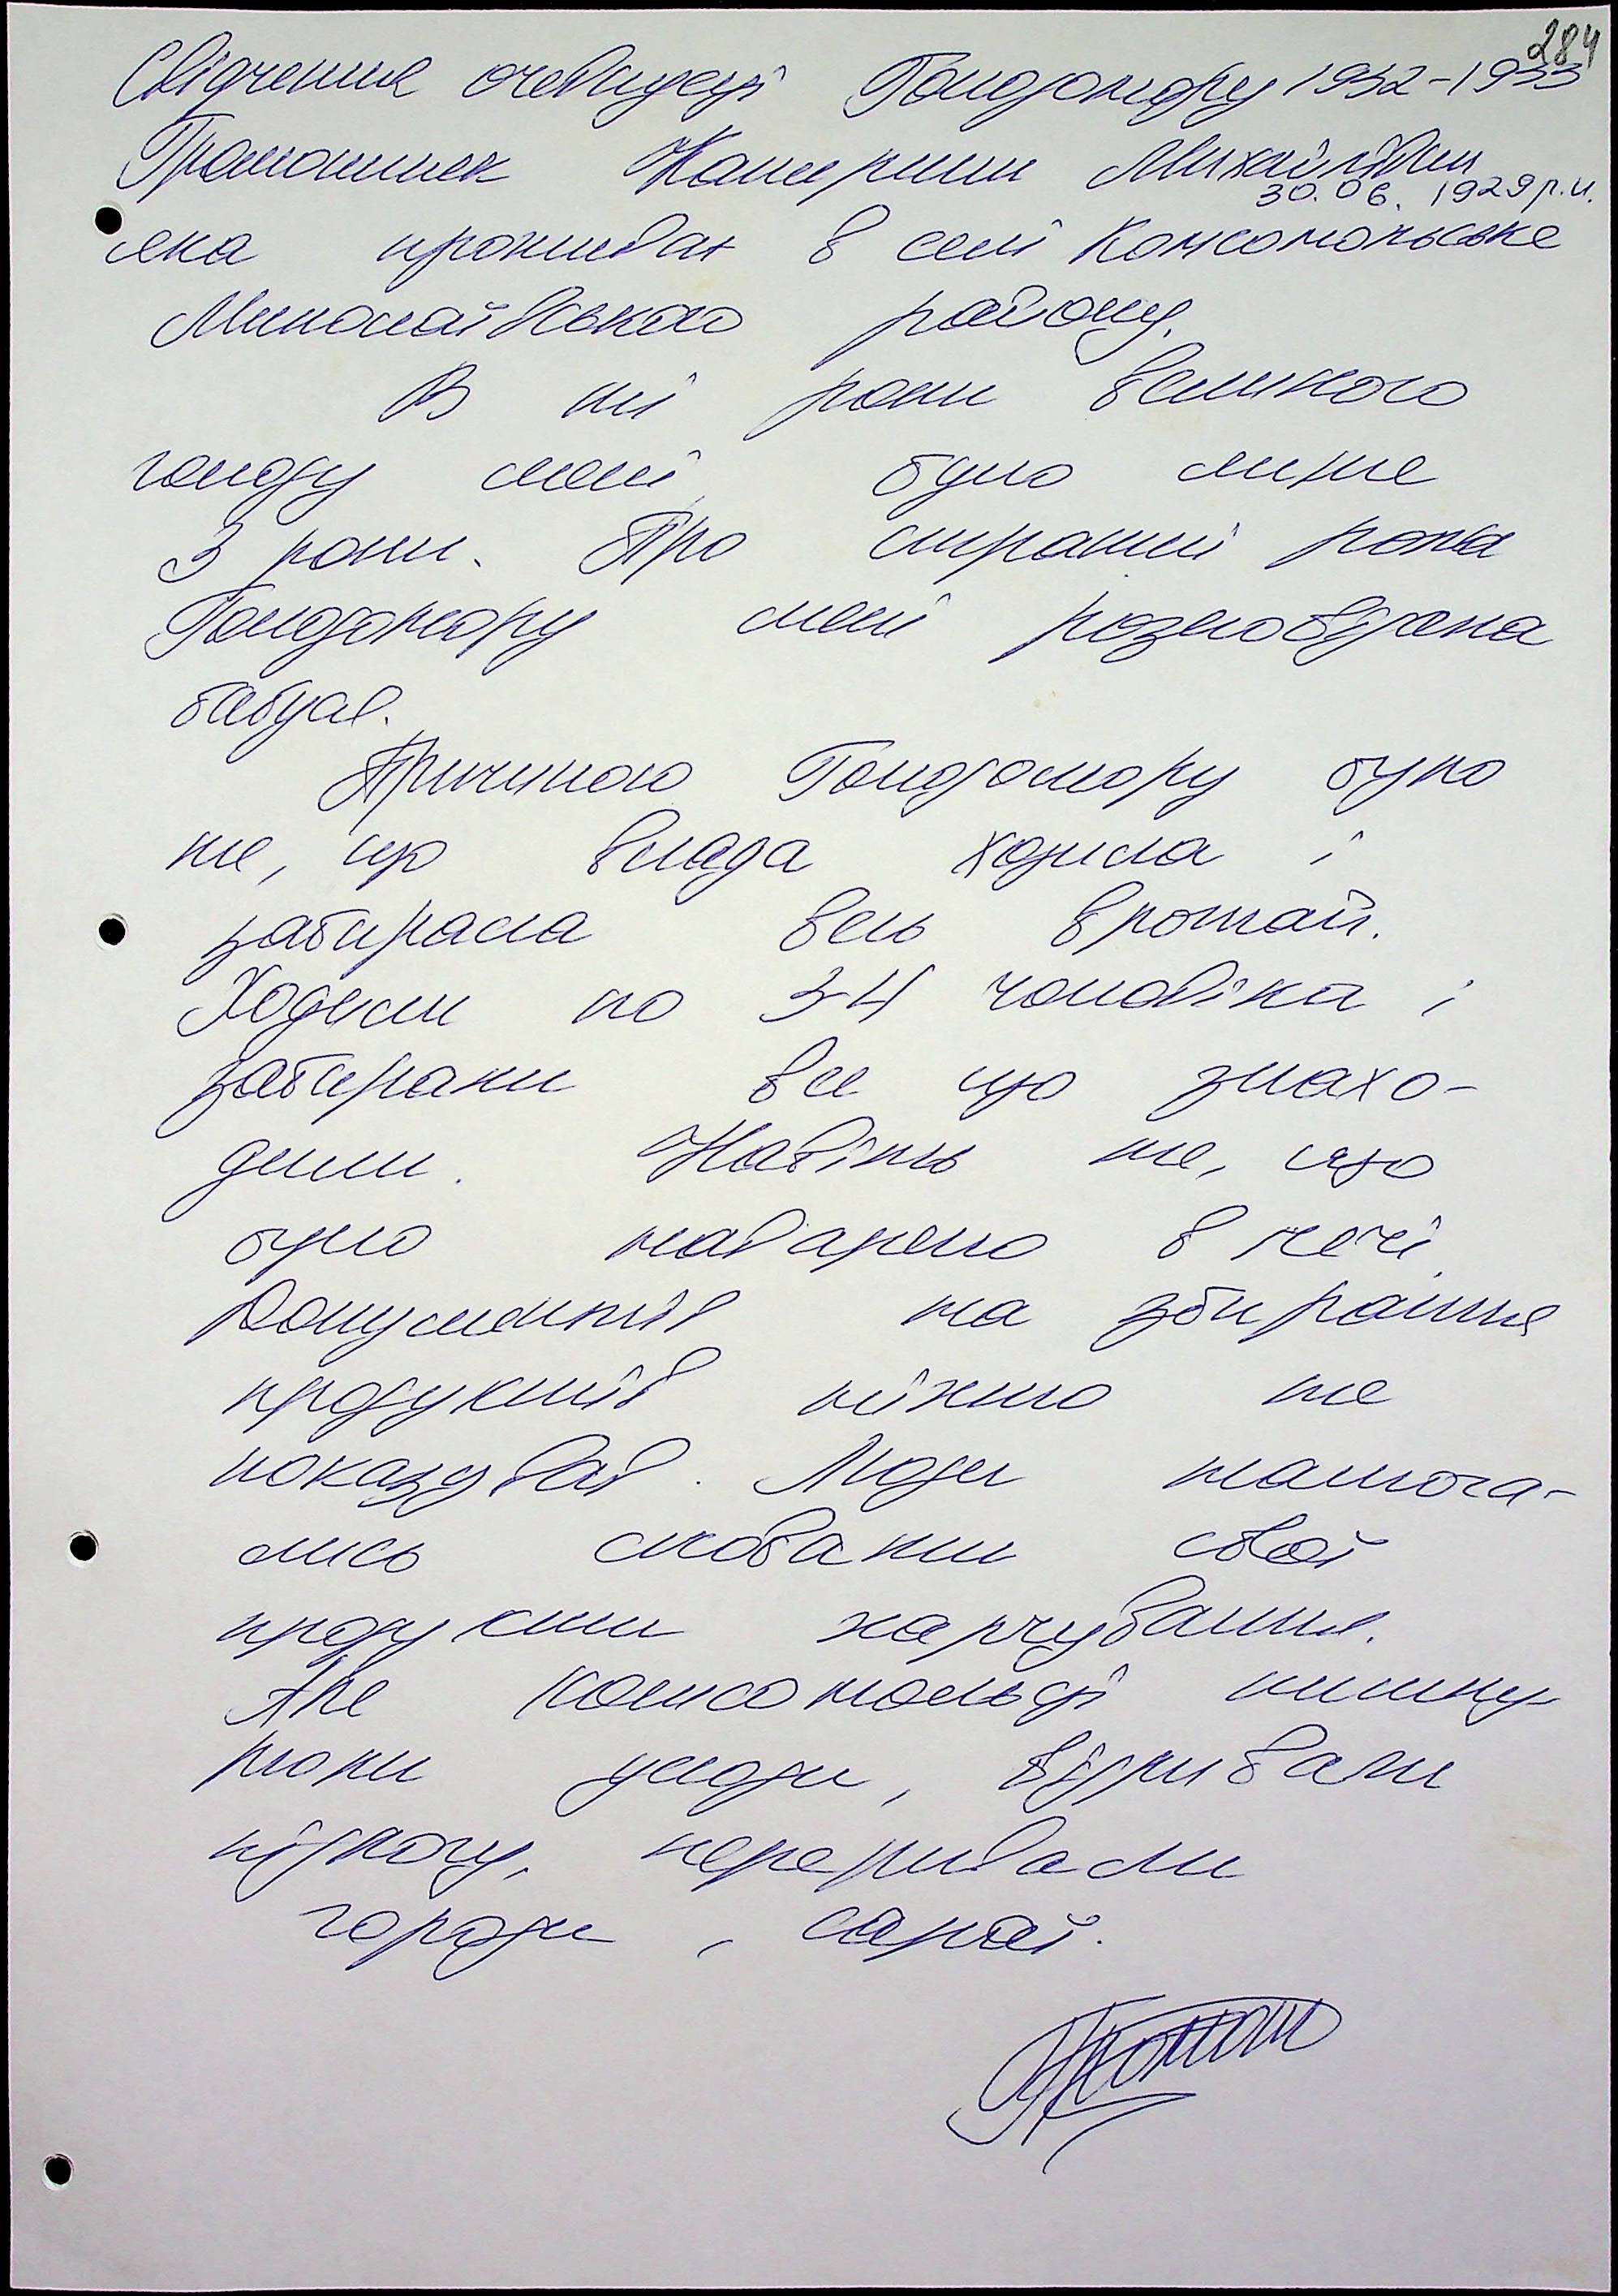 284
Свідчення очевидеці Голодомору 1932-1933
Катерини Михайлівни
30.06. 1929 р.н.
яка проживає в селі Комсомольське
Миколаївського району.
В ті роки великого
голоду мені було лише
3 роки. Про страшні роки
Голодомору мені розповідала
бабуся.
Причиною Голодомору було
те, що влада ходила і
забирала весь врожай.
Ходили по 3-4 чоловіка і
забирали все що знахо-
дили. Навіть те, що
було наварено в печі.
Документів на збирання
продуктів ніхто не
показував. Люди намага-
лись сховати свої
продукти харчування.
Але комсомольці
всюди, відривали
підлогу, переривали
городи, сараї.